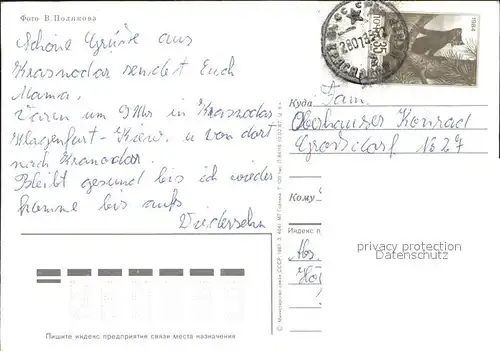 Фото В. Полякова
Schöne Grüße aus
Krasnodar sendet Euch
Mama.
Waren um 9 Uhr in Krasnodar
Klagenfurt - Kiew. u von dort
nach Kranodar.
Bleibt gesund bis ich wieder
komme bis aufs
Wiedersehn
1984
35
Куда
Fam.
Oberhauser Konrad
Grossdorf No 27
Кому
Индекс п
Abs.
privacy protection
Datenschutz
Министерство связи СССР. 1987. З.
Пишите индекс предприятия связи места назначения